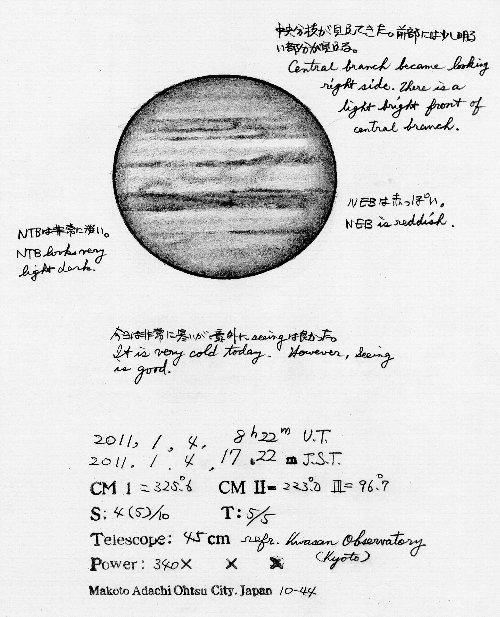 中央分枝が見えてきた。前部には少し明る
い部分が見える。
Central branch became looking
right side. There is a
light bright front of
central branch.
NEBは赤っぽい。
NEB is reddish.
NTBは非常に淡い。
NTB looks very
light dark.
今日は非常に寒いが意外にseeingは良かった。
It is very cold today. However, seeing
is good.
2011, 1, 4, 8h22m U.T.
2011. 1 4 , 17 .22 m J.S.T.
CM I = 325.°6 CM II= 223.°0 III= 96.°7
S: 4(5)/10 T: 5/5
Telescope: 45cm refr. Kwasan Observatory
(Kyoto)
Power: 340× × ×
Makoto Adachi Ohtsu City, Japan 10-44